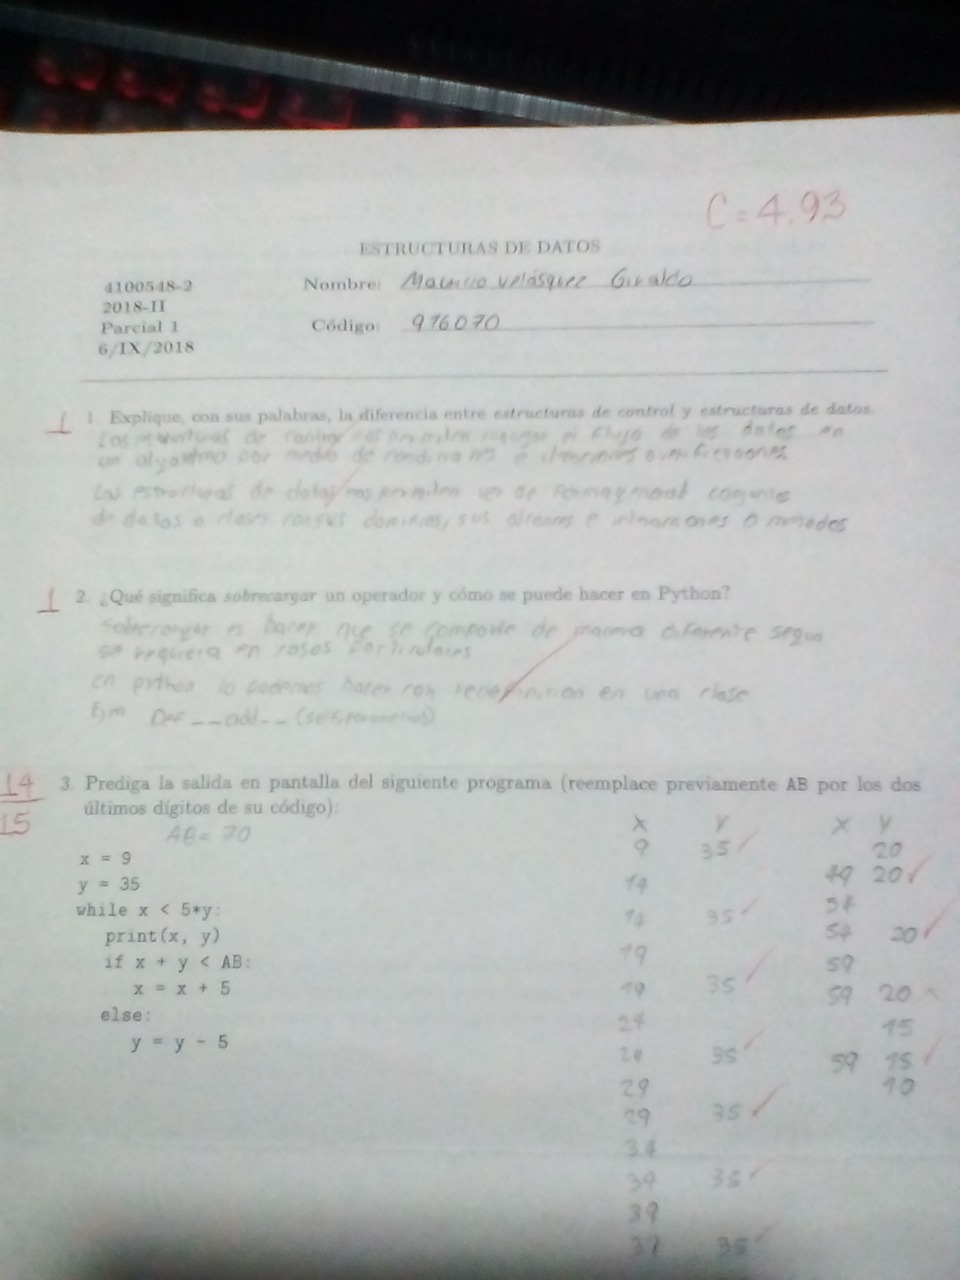 C = 4.93
ESTRUCTURAS DE DATOS
4100548-2
2018-II
Parcial 1
6/IX/2018
Nombre: Mauricio Velásquez Giraldo
Código: 916070
1 1. Explique, con sus palabras, la diferencia entre estructuras de control y estructuras de datos.
Las estructuras de control nos permiten el flujo de los datos en
un algoritmo por medio de
Las estructuras de datos nos permiten ver de forma general conjuntos
de datos o clases con sus dominios, sus o metodos
1 2. ¿Qué significa sobrecargar un operador y cómo se puede hacer en Python?
Sobrecargar es hacer que se comporte de manera diferente segun
se requiera en casos particulares
en python lo podemos hacer con redefinicion en una clase
Ejm Def __add__ (self,
14
15
3. Prediga la salida en pantalla del siguiente programa (reemplace previamente AB por los dos
últimos dígitos de su código):
AB = 70
x = 9
y = 35
while x < 5*y:
print(x, y)
if x + y < AB:
x = x + 5
else:
y = y - 5
X Y
9 35
14
14 35
19
19 35
24
24 35
29
29 35
34
34 35
39
39 35
X Y
20
49 20
54
54 20
59
59 20
15
59 15
10